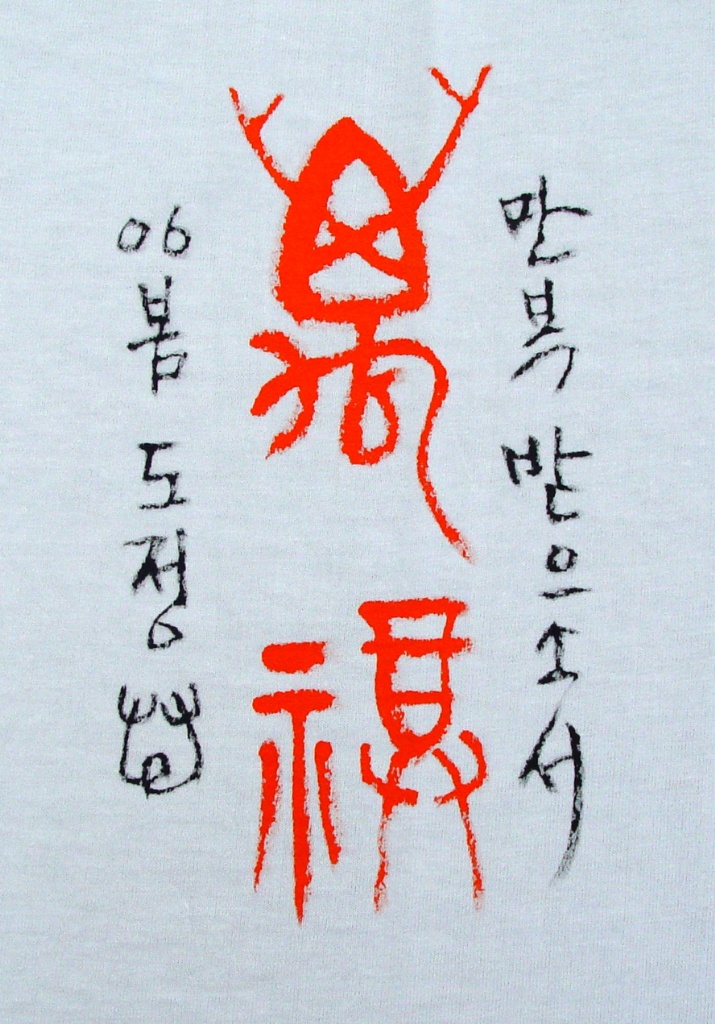 萬
福
만복 받으소서
06 봄 도정